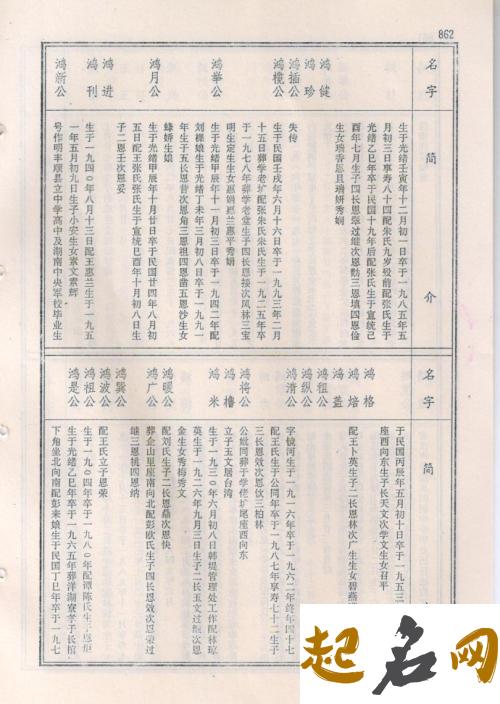 862
名字
鸿健
鸿珍
鸿插公
鸿榄公
鸿举公
鸿月公
鸿进
鸿刊
鸿新公
简介
生于光绪壬寅年十二月初一日卒于一九八五年五
月初三日享寿八十四配朱氏九岁殁前配张氏生于
光绪乙巳年卒于民国十九年后配张氏生于宣统己
酉年七月生子四长恩翠过继次恩勳三恩填四恩俭
生女瑞香恩且瑞妍秀娴
失传
生于民国壬戌年六月十六日卒于一九九三年二月
十五日葬学老圹配张氏朱氏生于一九二五年卒
于一九七八年葬学老堂生子四长恩接次风林三宝
明生定生生女惠娟恩兰惠平秀娟
生于光绪甲辰年十一月初三日卒于一九四二年配
刘棵娘生于光绪丁未年三月初八日卒于一九九一
年生子五长恩昔次恩角三恩祖四恩凿五恩沙生女
蜂娇生娘
生于光绪甲辰年十月廿日卒于民国廿四年八月初
五日配王张氏张氏生于宣统己酉年十月初八日生
子二恩壬次恩妥
生于一九四〇年八月十三日配王惠兰生于一九五
一年五月初九日生子小安生女素文素辉
号作明丰顺县立中学高中及湖南中央军校毕业生
名字
鸿格
鸿焙
鸿盖
鸿租公
鸿纵公
鸿清公
鸿将公
鸿橹
鸿米
鸿暖公
鸿广公
鸿巽公
鸿波公
鸿祖公
鸿是公
简
于民国丙辰年五月初十日卒于一九五三
座西向东生子长天文次学文生女召平
配王卜英生子二长恩林次广生生女碧燕
字镜河生于一九一六年卒于一九六二年终年四十七
配王氏生于公同年卒于一九八七年享寿七十二生子
三长恩效次恩伙三柏林
公妣同葬于学佬圹尾座西向东
立子玉文居台湾
生于一九三〇年六月初八日韩堤管理处工作配林琼
英生于一九二六年九月三日生子二长玉文过继次恩
金生女秀梅秀文
配刘氏生子二长恩鼎次恩快
葬企山里座南向北配彭欧氏生子四长恩效次恩荣过
继三恩桃四恩纳
配王氏立子恩荣
生于一九〇四年卒于一九八〇年配谭陈氏生三恩炬
生于光绪乙巳年卒于一九六五年葬洋湖寮孝子长棺
下角坐北向南配彭来娘生于民国丁巳年卒于一九七
起名网